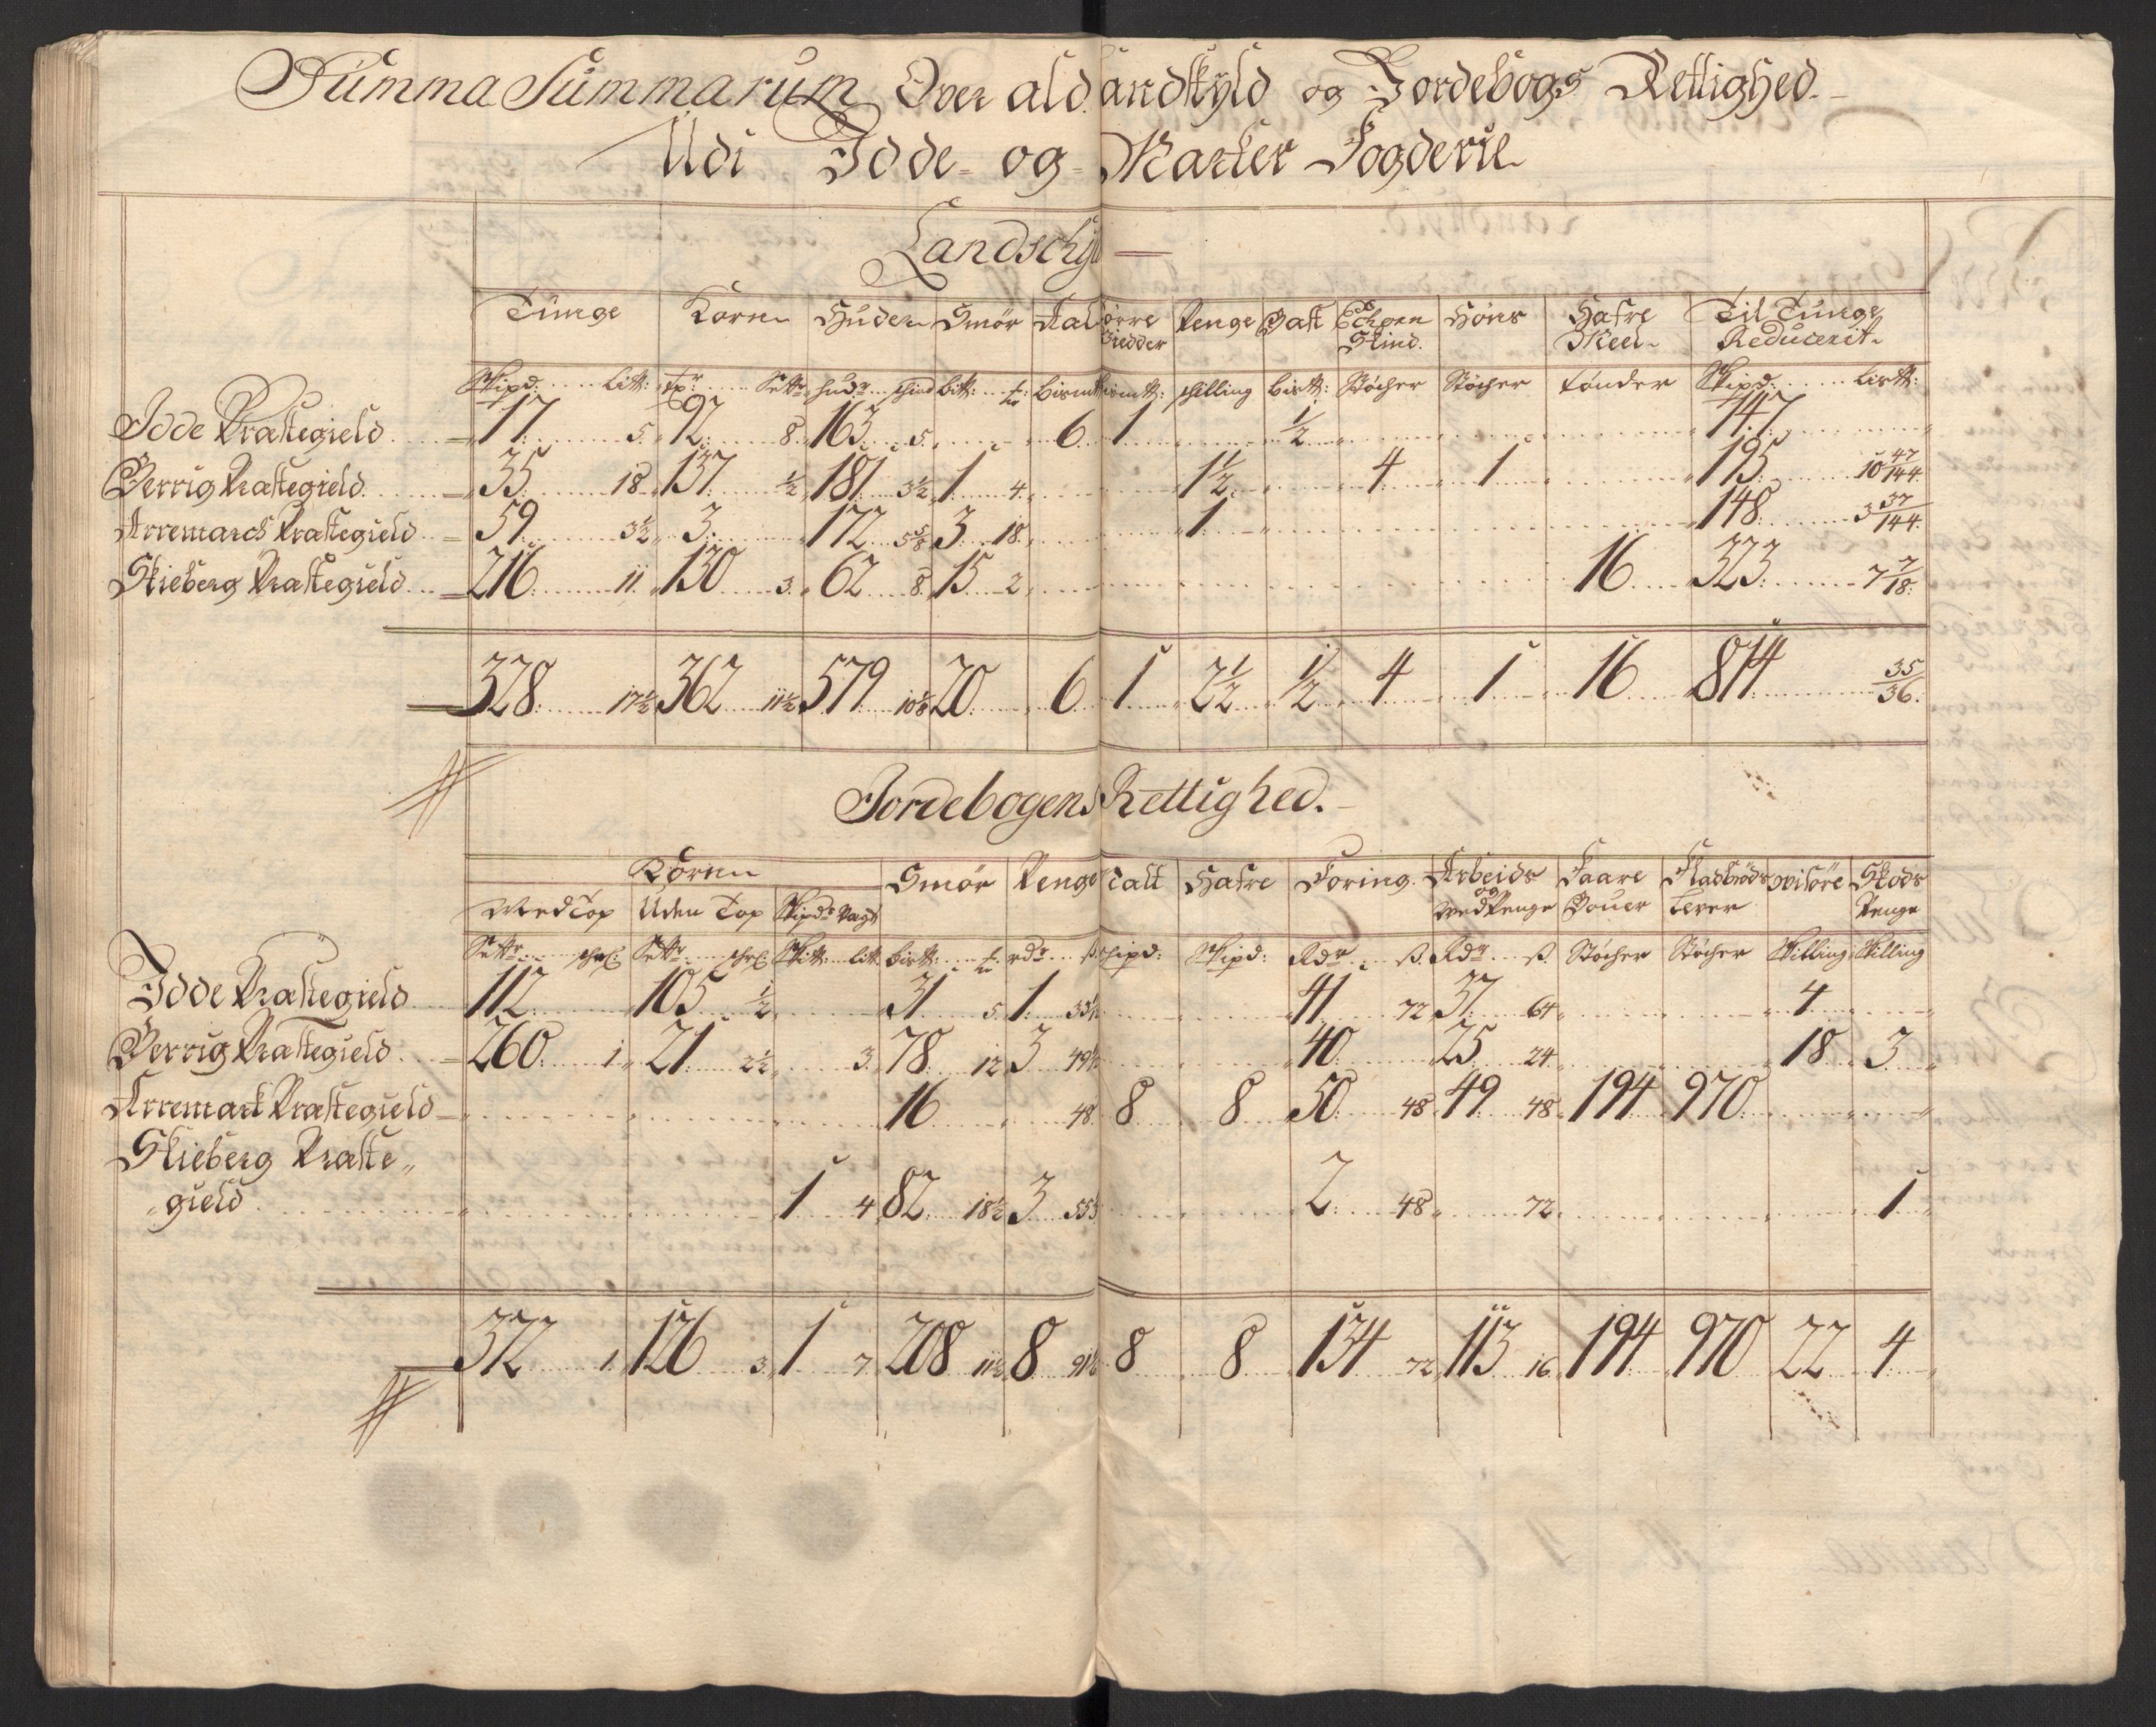 Summa Summarum Over ald Landskyld og Jordebogs Rettighed.
Udi Idde- og Marker Fogderie
Landschyld
Tunge Korn Huder Smör Aal Törre Giedder Penge Salt Skind. Höns Hafre Meel Til Tunge Reducerit.
Skipd: Litt: Sett: hudr skind bitt: bismt: schilling bistt: Stöcher Stöcher tönder Skipd: listt:
Idde Præstegield 17 5 92 8 163 5 6 1 ½ 147
Berrig Præstegield 35 18 137 ½ 181 3½ 1 4 1½ 4 1 195 10 47/144
Arremarch Præstegield 59 3½ 3 172 5⅝ 3 18 1 148 3 37/144
Skieberg Præstegield 216 11 130 3 62 8 15 2 16 323 7 7/18
328 17½ 362 11½ 579 10⅛ 20 6 1 2½ ½ 4 1 16 814 35/36
Jordebogens Rettighed.
Korn Smör Penge Salt Hafre Foring. Arbeids og Wed Penge Faare Bouer Fladbröds Lever Skods Penge
Med Top Uden Top Skipds Vagt
Settr Settr Skitt: litt bistt: rdr ß schipd: Skipd: Rdr ß Rdr ß Stöcher Stöcher Skilling Skilling
Idde Præstegield 112 105 ½ 31 5 1 33½ 41 72 37 64 4
Berrig Præstegield 260 1 21 2½ 3 78 12 3 49½ 40 25 24 18 3
Arremark Præstegield 16 48 8 8 50 48 49 48 194 970
Skieberg Præste„
„gield 1 4 82 18½ 3 55 2 48 72 1
372 1 126 3 1 7 208 11½ 8 91 8 8 134 72 113 16 194 970 22 4